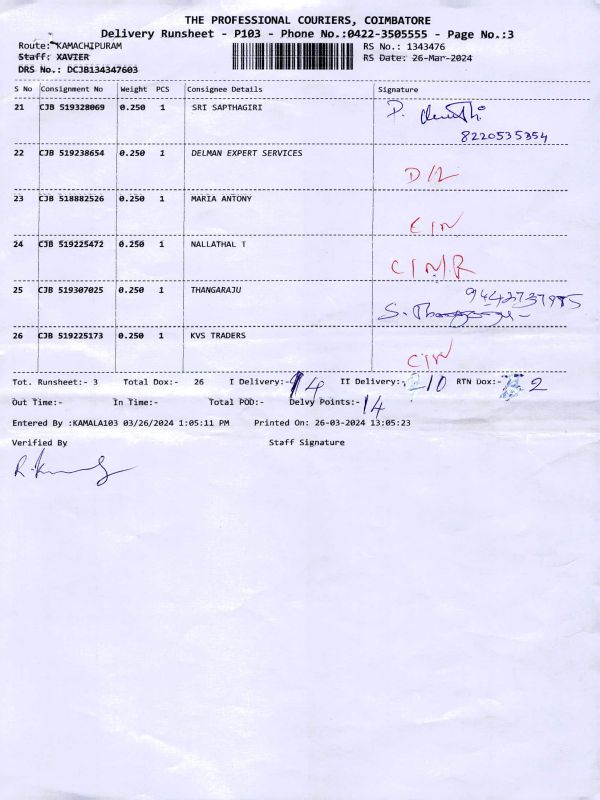 THE PROFESSIONAL COURIERS, COIMBATORE
Delivery Runsheet - P103 - Phone No.:0422-3505555 - Page No.:3
Route: KAMACHIPURAM RS No.: 1343476
Staff: XAVIER RS Date: 26-Mar-2024
DRS No.: DCJB134347603
S No Consignment No Weight PCS Consignee Details Signature
21 CJB 519328069 0.250 1 SRI SAPTHAGIRI
8220535354
22 CJB 519238654 0.250 1 DELMAN EXPERT SERVICES
D/L
23 CJB 518882526 0.250 1 MARIA ANTONY
C/N
24 CJB 519225472 0.250 1 NALLATHAL T
C/N/R
25 CJB 519307025 0.250 1 THANGARAJU
26 CJB 519225173 0.250 1 KVS TRADERS
C/N
Tot. Runsheet:- 3 Total Dox:- 26 I Delivery:- 14 II Delivery:- 10 RTN Dox:- 2
Out Time:- In Time:- Total POD:- Delvy Points:- 14
Entered By :KAMALA103 03/26/2024 1:05:11 PM Printed On: 26-03-2024 13:05:23
Verified By Staff Signature